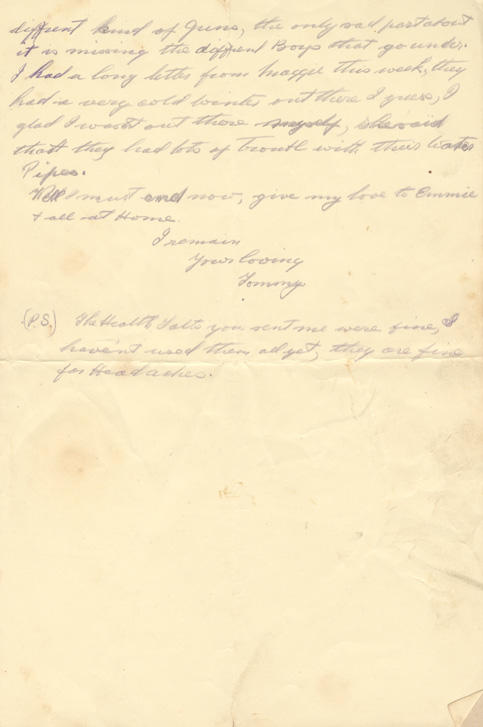 different kind of June, the only sad part about
it is missing the different Boys that go under.
I had a long letter from Maggie this week, they
had a very cold winter out there I guess, I
glad I wasnt out there myself, she said
that they had lots of trouble with their Water
Pipes.
Well I must end now, give my love to Emmie
& all at Home.
I remain
Yours loving
Tommy
(P.S.) The Health Salts you sent me were fine, I
haven't used them all yet, they are fine
for Headaches.